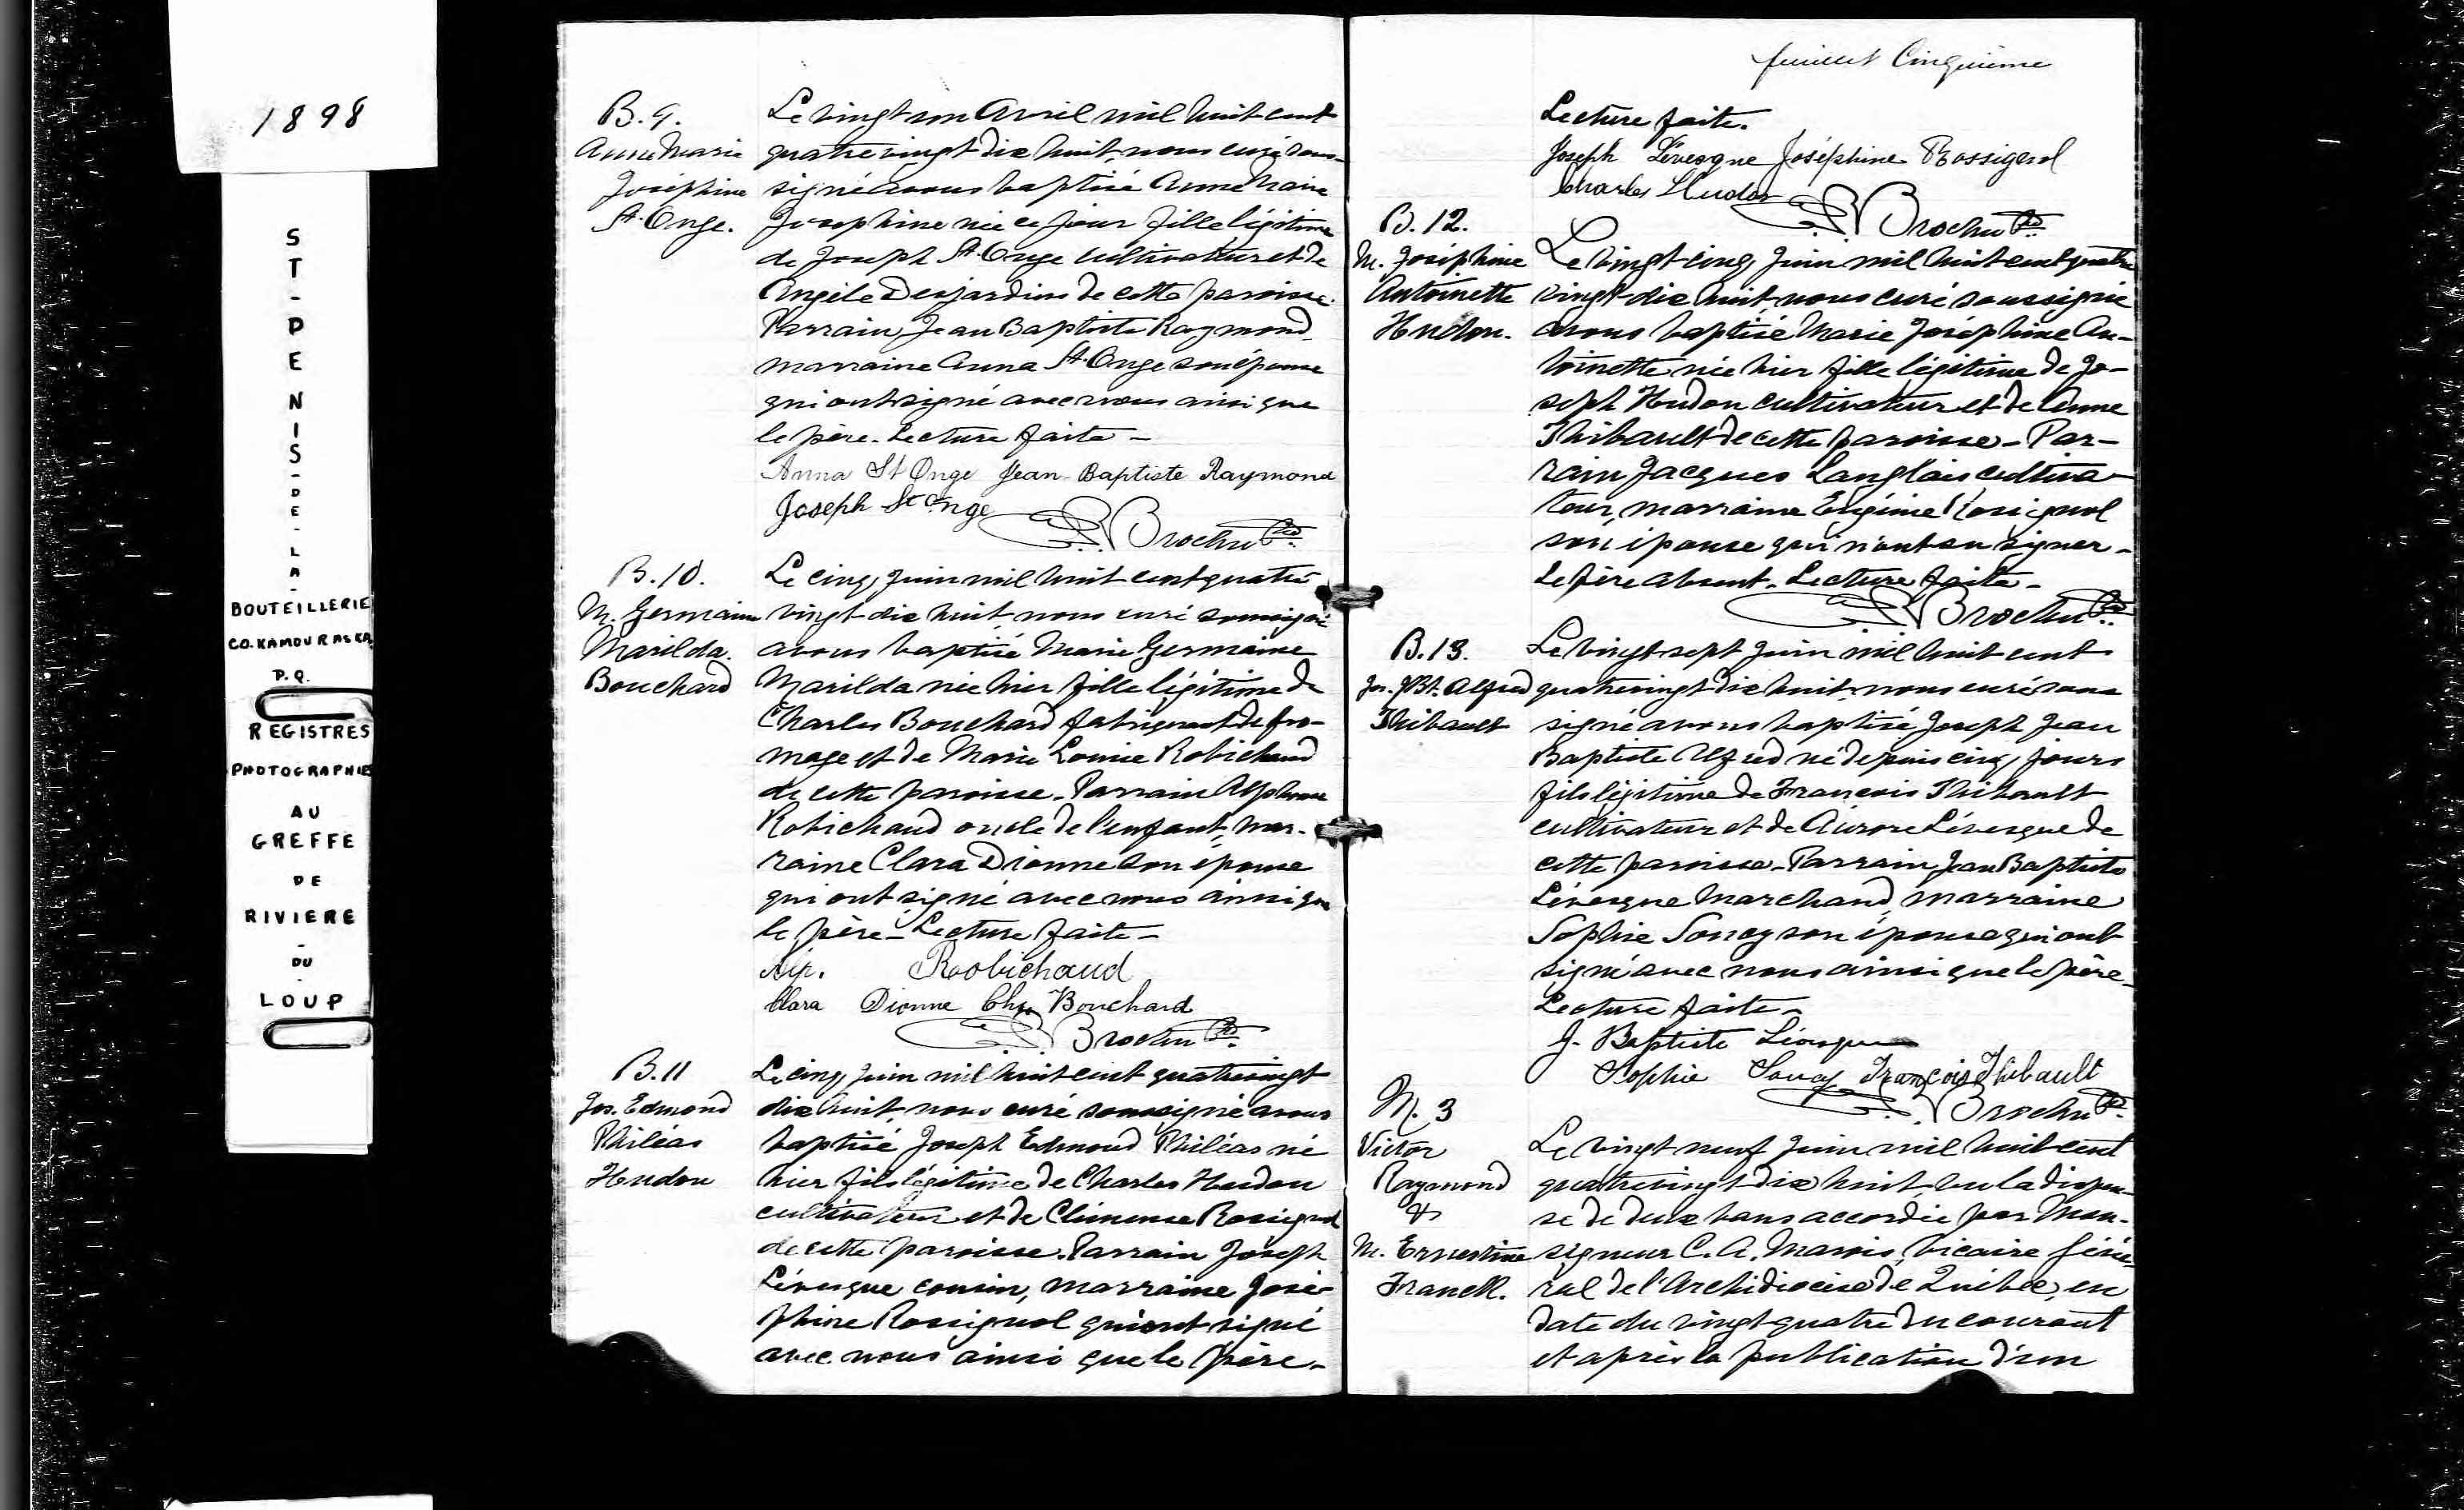 1898
ST-DENIS-DE-LA-
BOUTEILLERIE
CO. KAMOURASKA
P.Q.
REGISTRES
PHOTOGRAPHIES
AU
GREFFE
DE
RIVIERE
-
DU
-
LOUP
B. 9.
Anne Marie
Joséphine
St. Onge.
Le vingt un Avril mil huit cent
quatrevingt dix huit, nous curé sous-
signé avons baptisé Anne Marie
Josephine née ce jour fille légitime
de Joseph St. Onge cultivateur et de
Angèle Desjardins de cette paroisse.
Parrain, Jean Baptiste Raymond,
marraine Anna St. Onge son épouse
qui ont signé avec nous ainsi que
le père. Lecture faite -
Anna St Onge Jean-Baptiste Raymond
Joseph St Onge
Brochu Ptre
B. 10.
M. Germaine
Marilda
Bouchard
Le cinq Juin mil huit cent quatre
vingt-dix huit, nous curé soussigné
avons baptisé Marie Germaine
Marilda née hier fille légitime de
Charles Bouchard fabriquant de fro-
mage et de Marie Louise Robichaud
de cette paroisse. Parrain Alphonse
Robichaud oncle de l'enfant, mar-
raine Clara Dionne son épouse
qui ont signé avec nous ainsi que
le père - Lecture faite -
Alp. Roobichaud
Clara Dionne Chs Bouchard
Brochu Ptre
B. 11
Jos. Edmond
Philéas
Hudon
Le cinq Juin mil huit cent quatrevingt
dix huit, nous curé soussigné avons
baptisé Joseph Edmond Philéas né
hier fils légitime de Charles Hudon
cultivateur et de Clémence Rossignol
de cette paroisse. Parrain Joseph
Lévesque cousin, marraine José-
phine Rossignol qui ont signé
avec nous ainsi que le père -
feuillet Cinquième
Lecture faite.
Joseph Lévesque Joséphine Rossignol
Charles Hudon
Brochu Ptre
B. 12.
M. Joséphine
Antoinette
Hudon.
Le vingt-cinq Juin mil huit cent quatre
vingt-dix huit, nous curé soussigné
avons baptisé Marie Joséphine An-
toinette née hier fille légitime de Jo-
seph Hudon cultivateur et de Anne
Thibault de cette paroisse - Par-
rain Jacques Langlais cultiva-
teur, marraine Eugénie Rossignol
son épouse qui n'ont su signer -
Le père absent. Lecture faite -
Brochu Ptre
B. 13.
Jos. JBt. Alfred
Thibault
Le vingt sept Juin mil huit cent
quatrevingt dix huit, nous curé sous
signé avons baptisé Joseph Jean
Baptiste Alfred né depuis cinq jours
fils légitime de François Thibault
cultivateur et de Aurore Lévesque de
cette paroisse - Parrain, Jean Baptiste
Lévesque Marchand, marraine
Sophie Soucy son épouse qui ont
signé avec nous ainsi que le père -
Lecture faite -
J. Baptiste Lévesque
Sophie Soucy François Thibault
Brochu Ptre
M. 3
Victor
Raymond
&
M. Ernestine
Franck.
Le vingt neuf Juin mil huit cent
quatrevingt dix huit, vu la dispen-
se de deux bans accordée par Mon-
signeur C. A. Marois, Vicaire géné-
ral de l'Archidiocèse de Québec, en
date du vingt quatre du courant
et après la publication d'un